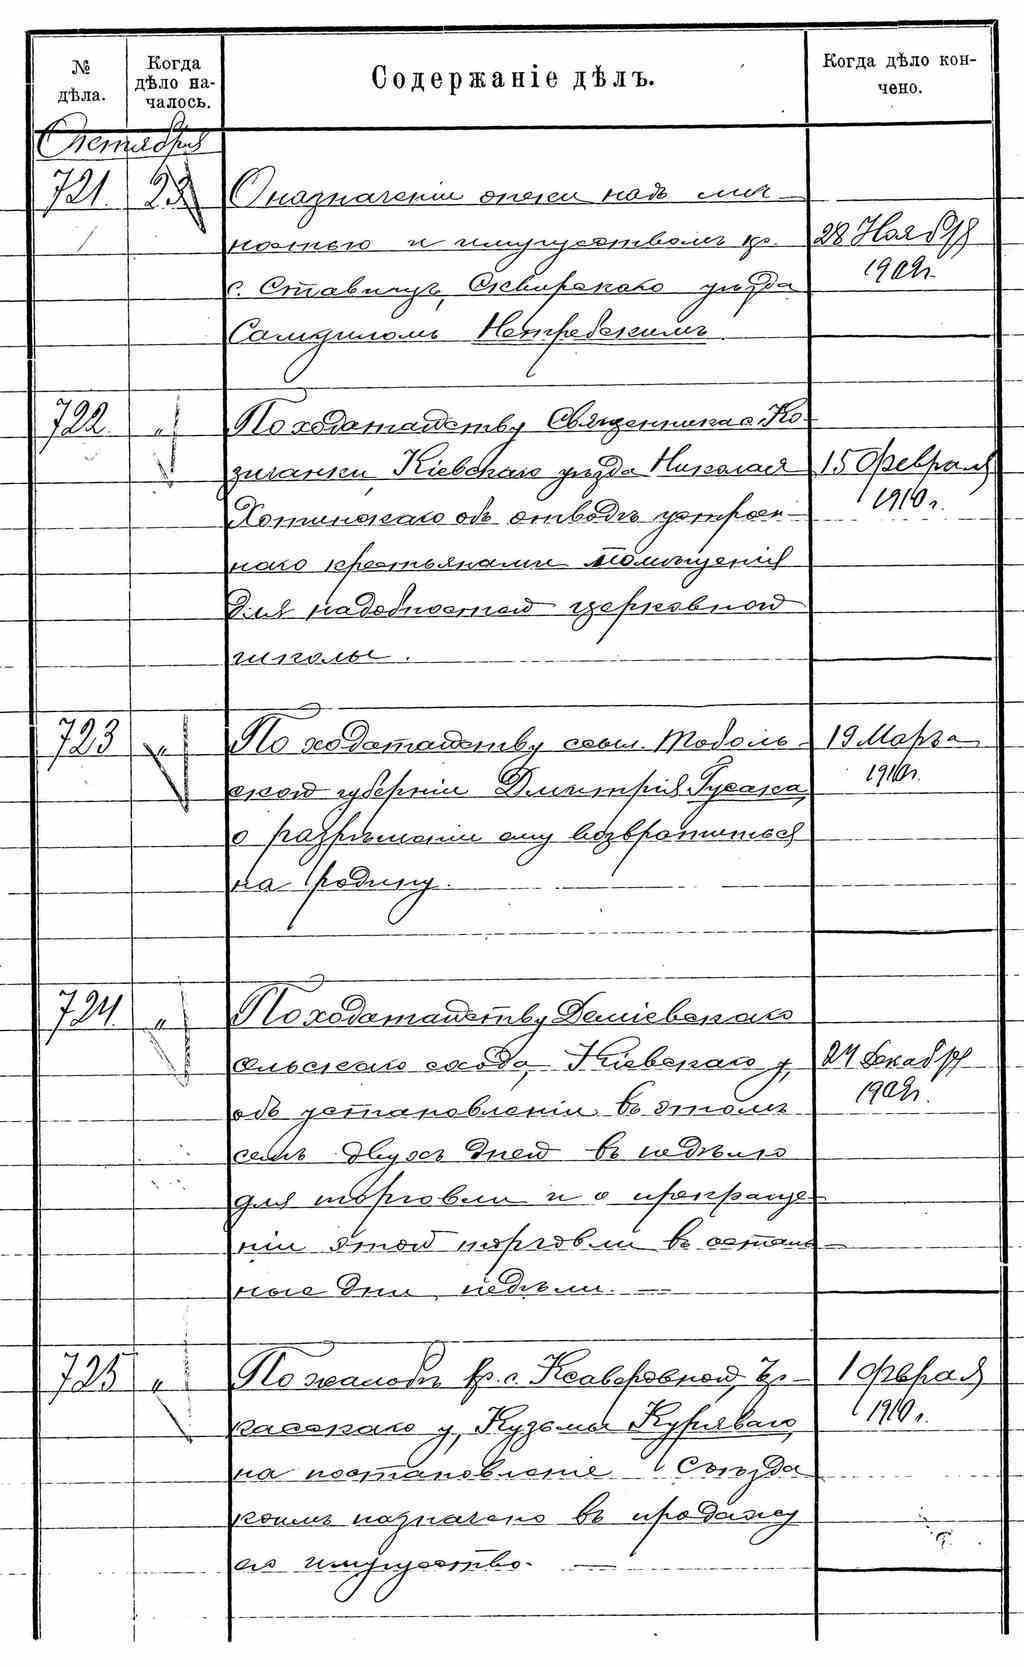 № дѣла.
Когда дѣло на-
чалось.
Содержаніе дѣлъ.
Когда дѣло кон-
чено.
Октября
721. 23. О назначеніи опеки надъ лич-
ностью и имуществомъ кр. 28 Ноября
с. Ставищъ, Сквирскаго уѣзда 1909г.
Самуиломъ Нетребскимъ.
722. " По ходатайству Священника с. Ко-
жанки, Кіевскаго уѣзда Николая 15 Февраля
Хотинскаго объ отводѣ устроен- 1910 г.
наго крестьянами помѣщенія
для надобностей церковной
школы.
723 " По ходатайству ссыл. Тоболь- 19 Марта
ской губерніи Дмитрія Гусака, 1910г.
о разрѣшеніи ему возвратиться
на родину.
724. " По ходатайству Деміевскаго
сельскаго схода, Кіевскаго у, 24 Декабря
объ установленіи въ этомъ 1909г.
селѣ двухъ дней въ недѣлю
для торговли и о прекраще-
ніи этой торговли въ осталь-
ные дни недѣли.
725 " По жалобѣ кр. с. Ксаверовной, Чер- 1 Февраля
касскаго у, Кузьмы Куряваго, 1910 г.
на постановленіе Съѣзда
коимъ назначено въ продажу
его имущество.